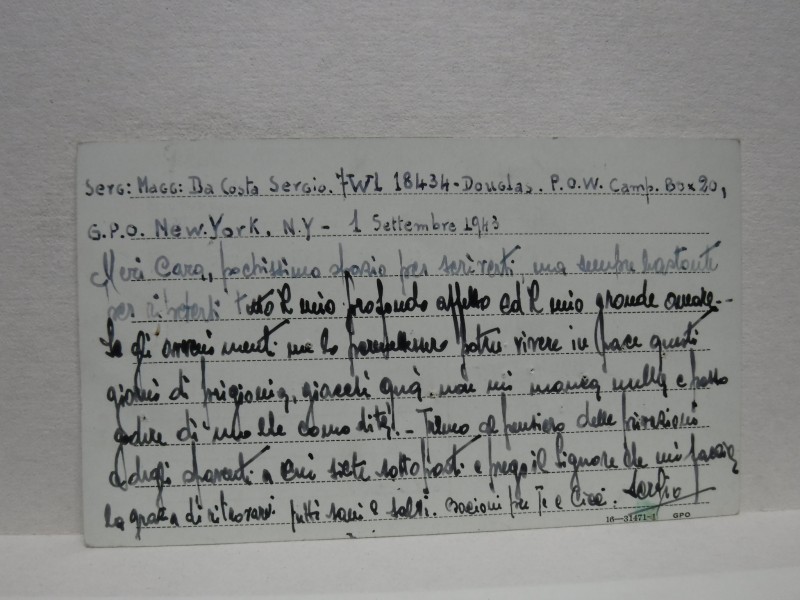 Serg: Magg: Da Costa Sergio. 7WI 18434 - Douglas. P.O.W. Camp. Box 20,
G.P.O. New York. N.Y - 1 Settembre 1943
Meri Cara, pochissimo spazio per scriverti ma sempre bastante
per ripeterti tutto il mio profondo affetto ed il mio grande amore--
Se gli avvenimenti me lo permettessero potrei vivere in pace questi
giorni di prigionia, giacchè quà non mi manca nulla e posso
godire di molte comodità. - Tremo al pensiero delle privazioni
e degli spaventi a cui siete sottoposti e prego il Signore che mi faccia
la grazia di ritrovarvi tutti sani e salvi. Bacioni per Te e Cicci. Sergio
16—31471-1 GPO